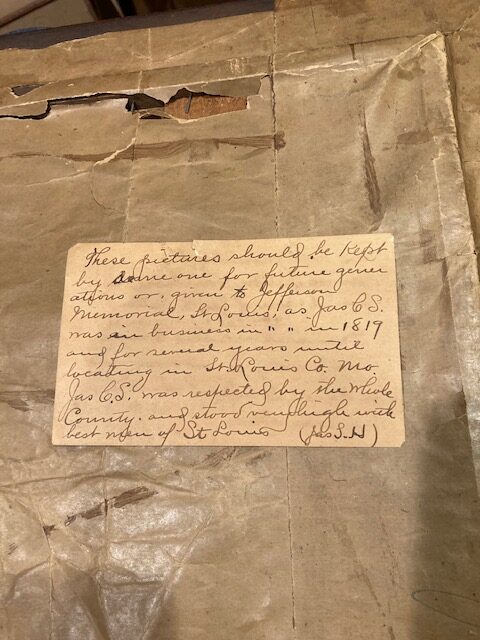 These pictures should be Kept
by some one for future gener
ations or, given to Jefferson
Memorial, St Louis, as Jas C S.
was in business in " " in 1819
and for several years until
locating in St. Louis Co. Mo
Jas C, S. was respected by the whole
County. and stood very high with
best men of St Louis (Jas S. H)